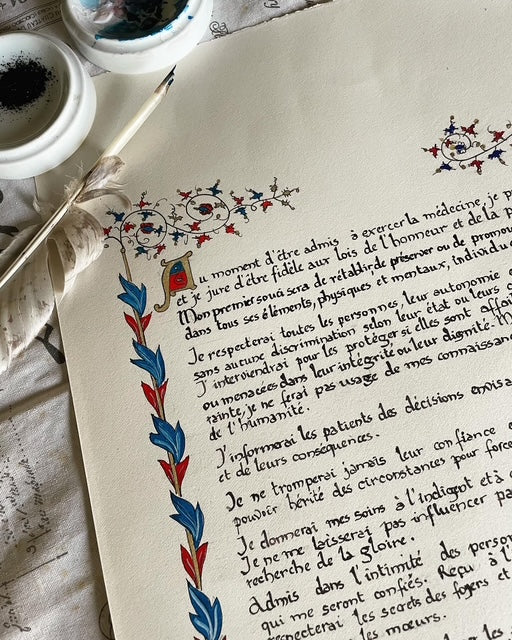 Au moment d'être admis à exercer la médecine, je
et je jure d'être fidèle aux lois de l'honneur et de la
Mon premier souci sera de rétablir de préserver ou de
dans tous ses éléments, physiques et mentaux,
Je respecterai toutes les personnes, leur autonomie
sans aucune discrimination selon leur état ou leurs
J'interviendrai pour les protéger si elles sont
ou menacées dans leur intégrité ou leur dignité.
rainte, je ne ferai pas usage de mes
de l'humanité.
J'informerai les patients des décisions
et de leurs conséquences.
Je ne tromperai jamais leur confiance
pouvoir hérité des circonstances pour
Je donnerai mes soins à l'indigent et à
Je ne me laisserai pas influencer
recherche de la gloire.
Admis dans l'intimité des
qui me seront confiés. Reçu à
respecterai les secrets des foyers et
les moeurs.